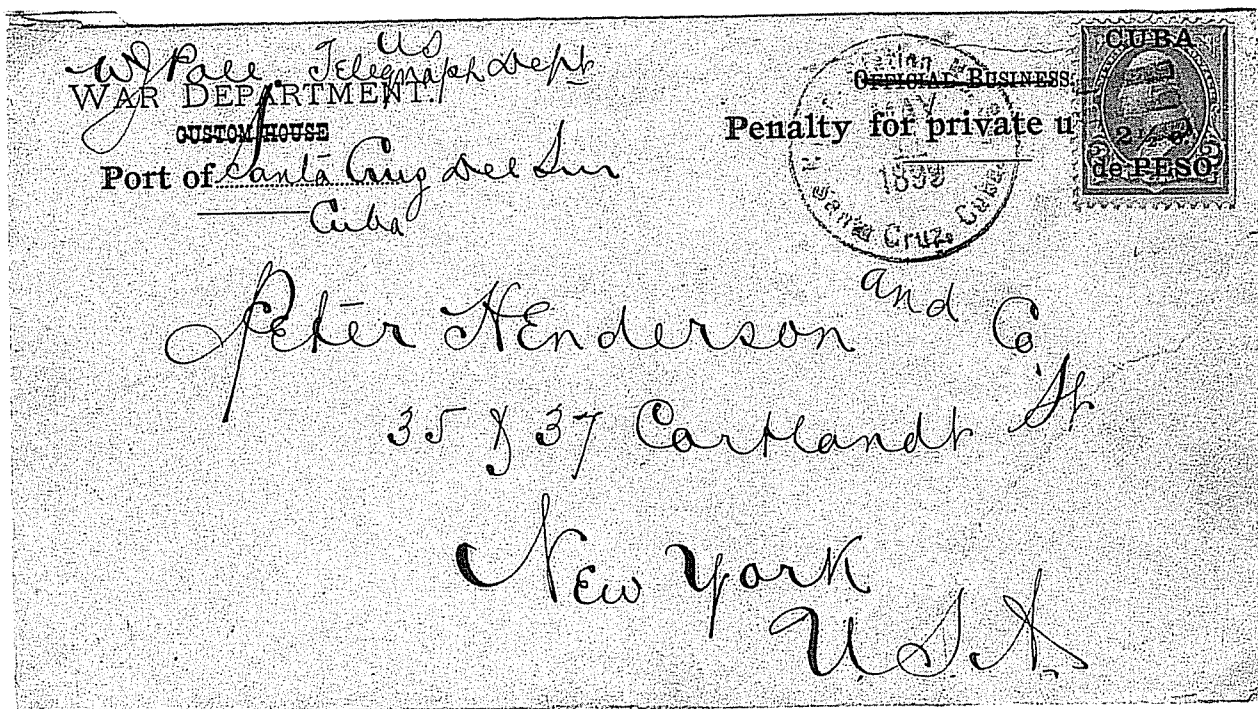 US
W J Telegraph Dept
WAR DEPARTMENT.
CUSTOM HOUSE
Port of Santa Cruz Del Sur
Cuba
OFFICIAL BUSINESS.
Penalty for private u
MAY
1899
Santa Cruz, Cuba
CUBA
2 1/2 c.
de PESO
Peter Henderson and Co
35 & 37 Cortlandt St
New York
U.S.A.